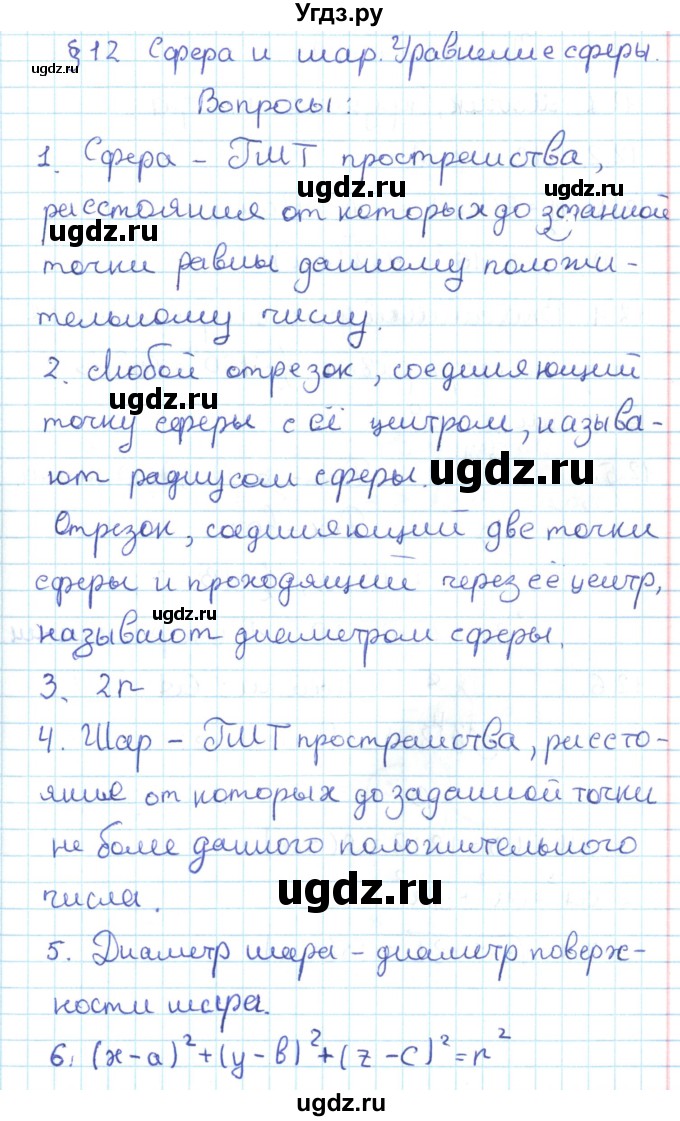 Угдз.ру
§ 12 Сфера и шар. Уравнение сферы.
ugdz.ru
Вопросы:
1. Сфера – ГМТ пространства,
ugdz.ru ugdz.ru
расстояния от которых до заданной
ugdz.ru
точки равны данному положи-
тельному числу.
2. Любой отрезок, соединяющий
ugdz.ru
точку сферы с её центром, называ-
ют радиусом сферы.
ugdz.ru
Отрезок, соединяющий две точки
сферы и проходящий через её центр,
ugdz.ru
называют диаметром сферы.
3. 2r
4. Шар – ГМТ пространства, рассто-
яние от которых до заданной точки
не более данного положительного
числа.
ugdz.ru
5. Диаметр шара – диаметр поверх-
ности шара.
6. (x-a)²+(y-b)²+(z-c)²=r²
ugdz.ru